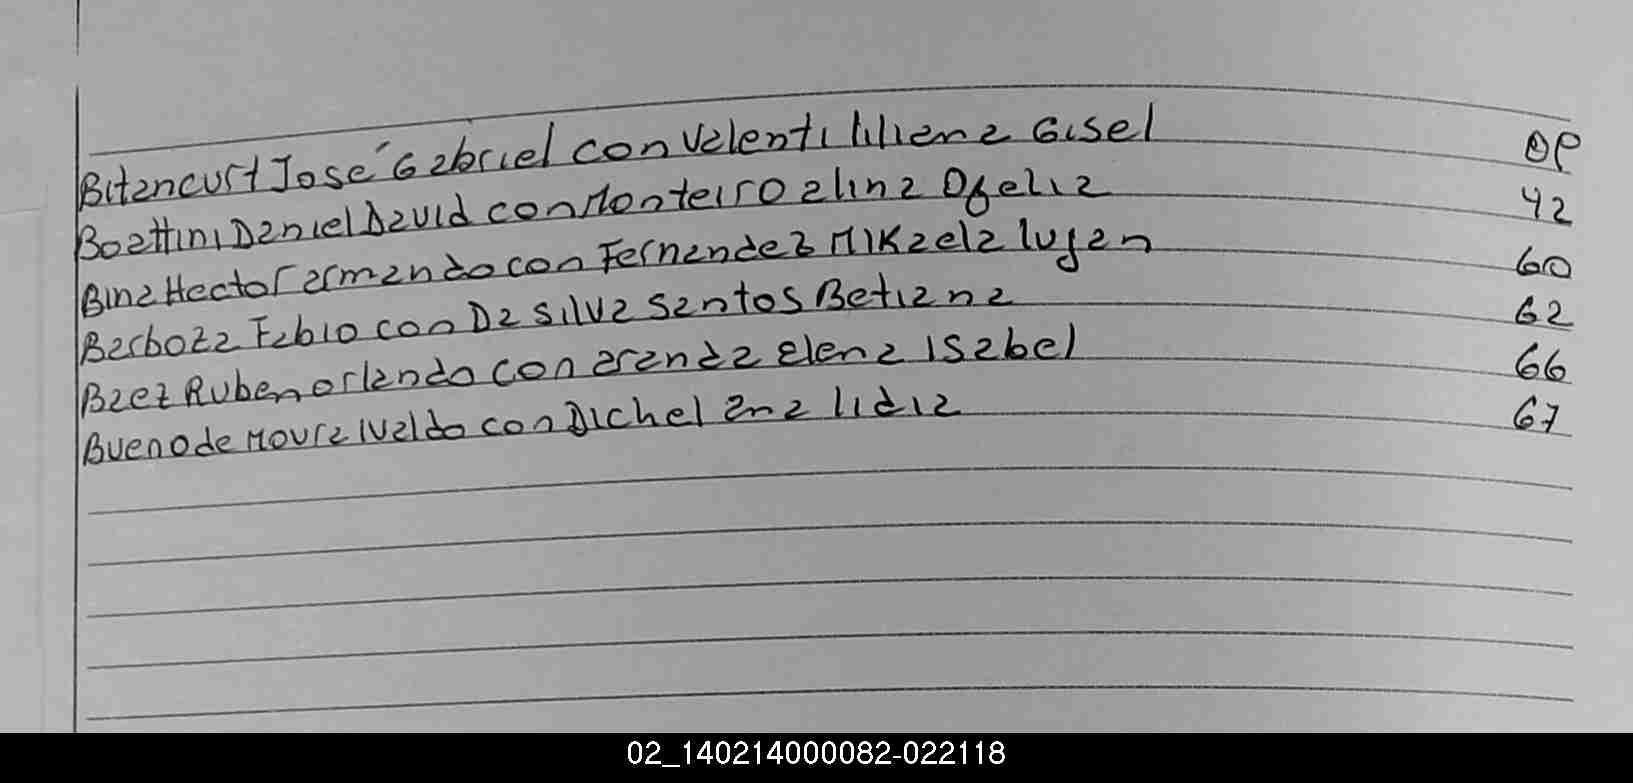 Bitancurt José Gabriel con Valenti liliana Gisel
Boattini Daniel David con Monteiro alina Ofelia 42
Bina Hector armando con Fernandez Mikaela lujan 60
Barboza Fabio con Da silva santos Betiana 62
Baez Ruben orlando con aranda Elena Isabel 66
Bueno de Moura Ivaldo con Dichel ana lidia 67
02_140214000082-022118